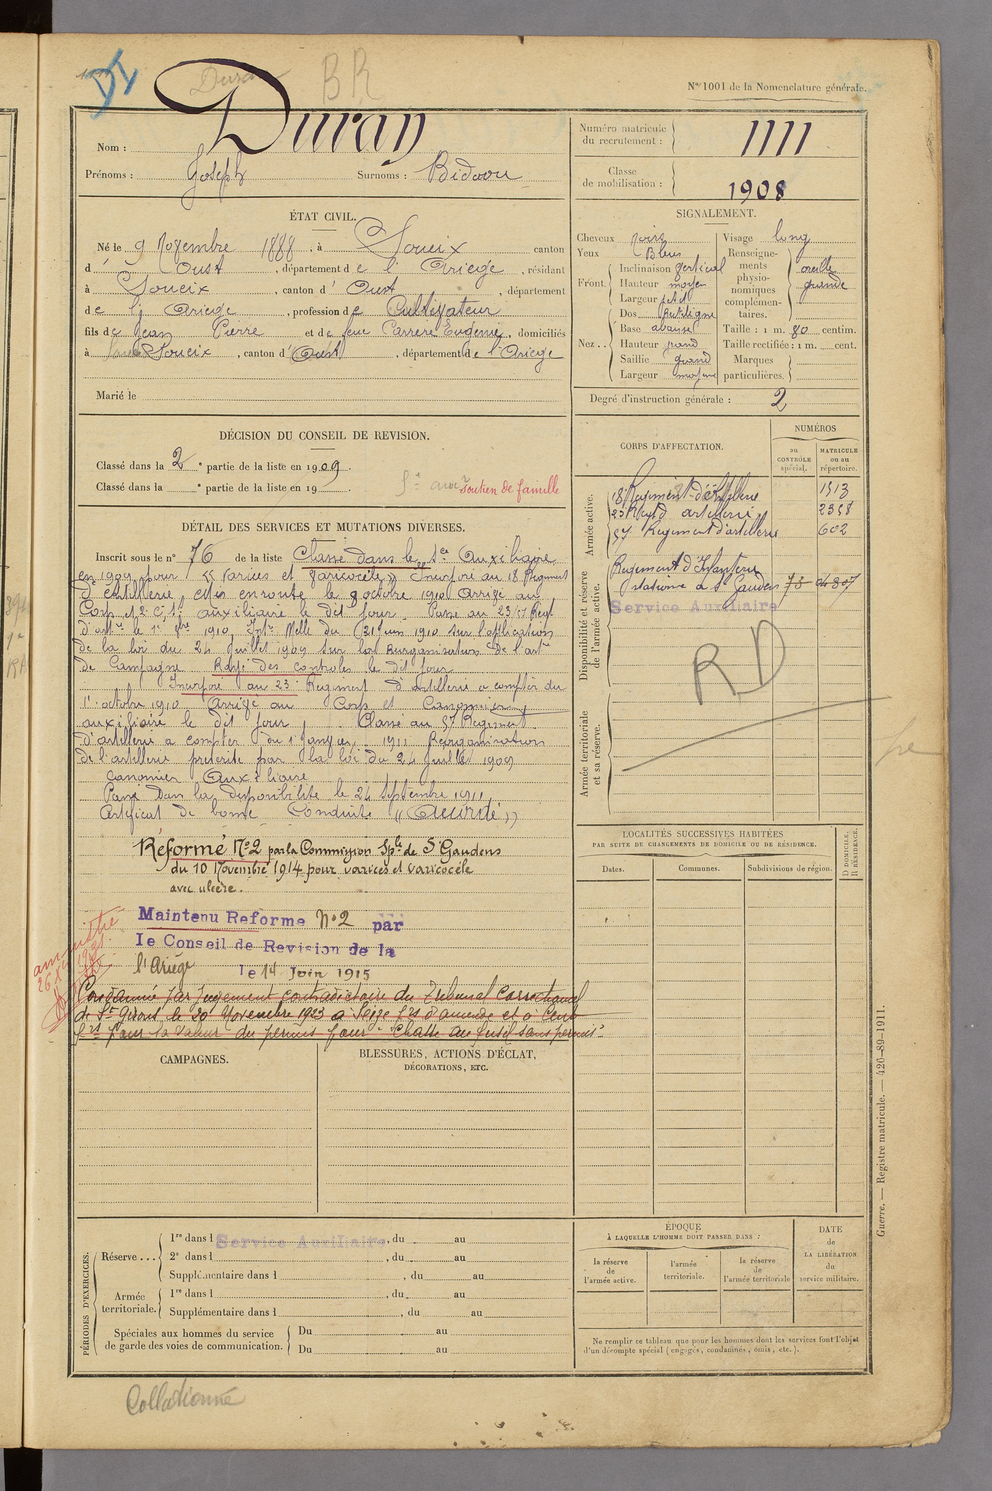 BR
Nº 1001 de la Nomenclature générale.
Nom : Duran
Prénoms : Joseph Surnoms : Bidaou
Numéro matricule du recrutement : 1111
Classe de mobilisation : 1908
ÉTAT CIVIL.
Né le 9 Novembre 1888, à Soueix canton
d' Oust, département de l'Ariège, résidant
à Soueix, canton d' Oust, département
de l'Ariège, profession de Cultivateur
fils de Jean Pierre et de feue Carrere Eugenie, domiciliés
à Soueix, canton d' Oust, département de l'Ariège
Marié le
SIGNALEMENT.
Cheveux noirs
Yeux Bleus
Front. Inclinaison vertical
Hauteur moyen
Largeur petit
Nez.. Dos Rectiligne
Base abaissé
Hauteur grand
Saillie grand
Largeur moyenne
Visage long
Renseignements physionomiques complémentaires. oreille grande
Taille : 1 m. 80 centim.
Taille rectifiée : 1 m. cent.
Marques particulières.
Degré d'instruction générale : 2
DÉCISION DU CONSEIL DE REVISION.
Classé dans la 2e partie de la liste en 1909.
Classé dans la e partie de la liste en 19 .
soutien de famille
DÉTAIL DES SERVICES ET MUTATIONS DIVERSES.
Inscrit sous le nº 76 de la liste Classé dans le sce Auxiliaire
en 1909 pour "varices et varicocèle" Incorporé au 18 Regiment
d'Artillerie, Mis en route le 9 octobre 1910 Arrivé au
Corps et 2e ctr auxiliaire le dit jour. Passé au 23 Regt
d'artie le 1er 1910, Ion Melle du (21 juin 1910 sur l'application
de la loi du 24 Juillet 1909 sur la Reorganisation de l'artie
de Campagne Rayé des controles le dit jour
Incorporé au 23e Regiment d'Artillerie a compter du
1er octobre 1910 Arrivé au Corps et Canonnier
auxiliaire le dit jour, Classé au 57 Regiment
d'artillerie a compter du 1er Janvier 1911 Réorganisation
de l'artillerie prescrite par la loi du 24 Juillet 1909
canonnier Auxiliaire
Passé dans la disponibilité le 24 Septembre 1911
Certificat de bonne Conduite "Accordé"
Réformé Nº2 par la Commission Sple de St Gaudens
du 10 Novembre 1914 pour varices et varicocèle
avec ulcère.
Maintenu Reforme Nº2 par
le Conseil de Revision de la
l'Ariège le 14 Juin 1915
amnistié
Condamné par jugement contradictoire du Tribunal Correctionnel
de St Girons le 20 Novembre 1923 à Seize frs d'amende et à Cent
frs pour la valeur du permis pour "Chasse au fusil sans permis"
CORPS D'AFFECTATION.
NUMÉROS
au CONTRÔLE spécial.
MATRICULE ou au répertoire.
Armée active.
18 Regiment d'Artillerie 1513
23 Regt d'artillerie 2358
57 Regiment d'artillerie 602
Disponibilité et réserve de l'armée active.
Regiment d'Infanterie
stationné à St Gaudens
Service Auxiliaire
RD
Armée territoriale et sa réserve.
LOCALITÉS SUCCESSIVES HABITÉES
PAR SUITE DE CHANGEMENTS DE DOMICILE OU DE RÉSIDENCE.
Dates.
Communes.
Subdivisions de région.
D DOMICILE. R RÉSIDENCE.
CAMPAGNES.
BLESSURES, ACTIONS D'ÉCLAT, DÉCORATIONS, ETC.
PÉRIODES D'EXERCICES.
Réserve... 1re dans l Service Auxiliaire, du au
2e dans l , du au
Supplémentaire dans l , du au
Armée territoriale. 1re dans l , du au
Supplémentaire dans l , du au
Spéciales aux hommes du service de garde des voies de communication. Du au
Du au
ÉPOQUE
À LAQUELLE L'HOMME DOIT PASSER DANS :
la réserve de l'armée active.
l'armée territoriale.
la réserve de l'armée territoriale
DATE de LA LIBÉRATION du service militaire.
Ne remplir ce tableau que pour les hommes dont les services font l'objet
d'un décompte spécial (engagés, condamnés, omis, etc.).
Guerre. — Registre matricule. — 426-89-1911.
Collationné